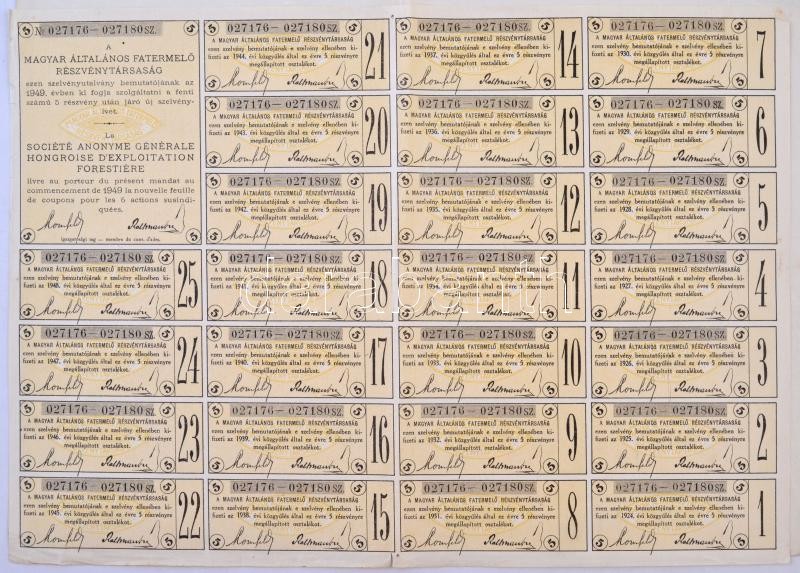 № 027176—027180 SZ.
A
MAGYAR ÁLTALÁNOS FATERMELŐ
RÉSZVÉNYTÁRSASÁG
ezen szelvényutalvány bemutatójának az
1949. évben ki fogja szolgáltatni a fenti
számú 5 részvény után járó új szelvény-
ívet.
La
SOCIÉTÉ ANONYME GÉNÉRALE
HONGROISE D'EXPLOITATION
FORESTIÈRE
livre au porteur du présent mandat au
commencement de 1949 la nouvelle feuille
de coupons pour les 5 actions susindi-
quées.
(igazgatósági tag — membre du cons. d'adm.)
027176—027180 SZ.
A MAGYAR ÁLTALÁNOS FATERMELŐ RÉSZVÉNYTÁRSASÁG
ezen szelvény bemutatójának e szelvény ellenében ki-
fizeti az 1948. évi közgyűlés által ez évre 5 részvényre
megállapított osztalékot.
25
027176—027180 SZ.
A MAGYAR ÁLTALÁNOS FATERMELŐ RÉSZVÉNYTÁRSASÁG
ezen szelvény bemutatójának e szelvény ellenében ki-
fizeti az 1947. évi közgyűlés által ez évre 5 részvényre
megállapított osztalékot.
24
027176—027180 SZ.
A MAGYAR ÁLTALÁNOS FATERMELŐ RÉSZVÉNYTÁRSASÁG
ezen szelvény bemutatójának e szelvény ellenében ki-
fizeti az 1946. évi közgyűlés által ez évre 5 részvényre
megállapított osztalékot.
23
027176—027180 SZ.
A MAGYAR ÁLTALÁNOS FATERMELŐ RÉSZVÉNYTÁRSASÁG
ezen szelvény bemutatójának e szelvény ellenében ki-
fizeti az 1945. évi közgyűlés által ez évre 5 részvényre
megállapított osztalékot.
22
027176—027180 SZ.
A MAGYAR ÁLTALÁNOS FATERMELŐ RÉSZVÉNYTÁRSASÁG
ezen szelvény bemutatójának e szelvény ellenében ki-
fizeti az 1944. évi közgyűlés által ez évre 5 részvényre
megállapított osztalékot.
21
027176—027180 SZ.
A MAGYAR ÁLTALÁNOS FATERMELŐ RÉSZVÉNYTÁRSASÁG
ezen szelvény bemutatójának e szelvény ellenében ki-
fizeti az 1943. évi közgyűlés által ez évre 5 részvényre
megállapított osztalékot.
20
027176—027180 SZ.
A MAGYAR ÁLTALÁNOS FATERMELŐ RÉSZVÉNYTÁRSASÁG
ezen szelvény bemutatójának e szelvény ellenében ki-
fizeti az 1942. évi közgyűlés által ez évre 5 részvényre
megállapított osztalékot.
19
027176—027180 SZ.
A MAGYAR ÁLTALÁNOS FATERMELŐ RÉSZVÉNYTÁRSASÁG
ezen szelvény bemutatójának e szelvény ellenében ki-
fizeti az 1941. évi közgyűlés által ez évre 5 részvényre
megállapított osztalékot.
18
027176—027180 SZ.
A MAGYAR ÁLTALÁNOS FATERMELŐ RÉSZVÉNYTÁRSASÁG
ezen szelvény bemutatójának e szelvény ellenében ki-
fizeti az 1940. évi közgyűlés által ez évre 5 részvényre
megállapított osztalékot.
17
027176—027180 SZ.
A MAGYAR ÁLTALÁNOS FATERMELŐ RÉSZVÉNYTÁRSASÁG
ezen szelvény bemutatójának e szelvény ellenében ki-
fizeti az 1939. évi közgyűlés által ez évre 5 részvényre
megállapított osztalékot.
16
027176—027180 SZ.
A MAGYAR ÁLTALÁNOS FATERMELŐ RÉSZVÉNYTÁRSASÁG
ezen szelvény bemutatójának e szelvény ellenében ki-
fizeti az 1938. évi közgyűlés által ez évre 5 részvényre
megállapított osztalékot.
15
027176—027180 SZ.
A MAGYAR ÁLTALÁNOS FATERMELŐ RÉSZVÉNYTÁRSASÁG
ezen szelvény bemutatójának e szelvény ellenében ki-
fizeti az 1937. évi közgyűlés által ez évre 5 részvényre
megállapított osztalékot.
14
027176—027180 SZ.
A MAGYAR ÁLTALÁNOS FATERMELŐ RÉSZVÉNYTÁRSASÁG
ezen szelvény bemutatójának e szelvény ellenében ki-
fizeti az 1936. évi közgyűlés által ez évre 5 részvényre
megállapított osztalékot.
13
027176—027180 SZ.
A MAGYAR ÁLTALÁNOS FATERMELŐ RÉSZVÉNYTÁRSASÁG
ezen szelvény bemutatójának e szelvény ellenében ki-
fizeti az 1935. évi közgyűlés által ez évre 5 részvényre
megállapított osztalékot.
12
027176—027180 SZ.
A MAGYAR ÁLTALÁNOS FATERMELŐ RÉSZVÉNYTÁRSASÁG
ezen szelvény bemutatójának e szelvény ellenében ki-
fizeti az 1934. évi közgyűlés által ez évre 5 részvényre
megállapított osztalékot.
11
027176—027180 SZ.
A MAGYAR ÁLTALÁNOS FATERMELŐ RÉSZVÉNYTÁRSASÁG
ezen szelvény bemutatójának e szelvény ellenében ki-
fizeti az 1933. évi közgyűlés által ez évre 5 részvényre
megállapított osztalékot.
10
027176—027180 SZ.
A MAGYAR ÁLTALÁNOS FATERMELŐ RÉSZVÉNYTÁRSASÁG
ezen szelvény bemutatójának e szelvény ellenében ki-
fizeti az 1932. évi közgyűlés által ez évre 5 részvényre
megállapított osztalékot.
9
027176—027180 SZ.
A MAGYAR ÁLTALÁNOS FATERMELŐ RÉSZVÉNYTÁRSASÁG
ezen szelvény bemutatójának e szelvény ellenében ki-
fizeti az 1931. évi közgyűlés által ez évre 5 részvényre
megállapított osztalékot.
8
027176—027180 SZ.
A MAGYAR ÁLTALÁNOS FATERMELŐ RÉSZVÉNYTÁRSASÁG
ezen szelvény bemutatójának e szelvény ellenében ki-
fizeti az 1930. évi közgyűlés által ez évre 5 részvényre
megállapított osztalékot.
7
027176—027180 SZ.
A MAGYAR ÁLTALÁNOS FATERMELŐ RÉSZVÉNYTÁRSASÁG
ezen szelvény bemutatójának e szelvény ellenében ki-
fizeti az 1929. évi közgyűlés által ez évre 5 részvényre
megállapított osztalékot.
6
027176—027180 SZ.
A MAGYAR ÁLTALÁNOS FATERMELŐ RÉSZVÉNYTÁRSASÁG
ezen szelvény bemutatójának e szelvény ellenében ki-
fizeti az 1928. évi közgyűlés által ez évre 5 részvényre
megállapított osztalékot.
5
027176—027180 SZ.
A MAGYAR ÁLTALÁNOS FATERMELŐ RÉSZVÉNYTÁRSASÁG
ezen szelvény bemutatójának e szelvény ellenében ki-
fizeti az 1927. évi közgyűlés által ez évre 5 részvényre
megállapított osztalékot.
4
027176—027180 SZ.
A MAGYAR ÁLTALÁNOS FATERMELŐ RÉSZVÉNYTÁRSASÁG
ezen szelvény bemutatójának e szelvény ellenében ki-
fizeti az 1926. évi közgyűlés által ez évre 5 részvényre
megállapított osztalékot.
3
027176—027180 SZ.
A MAGYAR ÁLTALÁNOS FATERMELŐ RÉSZVÉNYTÁRSASÁG
ezen szelvény bemutatójának e szelvény ellenében ki-
fizeti az 1925. évi közgyűlés által ez évre 5 részvényre
megállapított osztalékot.
2
027176—027180 SZ.
A MAGYAR ÁLTALÁNOS FATERMELŐ RÉSZVÉNYTÁRSASÁG
ezen szelvény bemutatójának e szelvény ellenében ki-
fizeti az 1924. évi közgyűlés által ez évre 5 részvényre
megállapított osztalékot.
1
darabanth